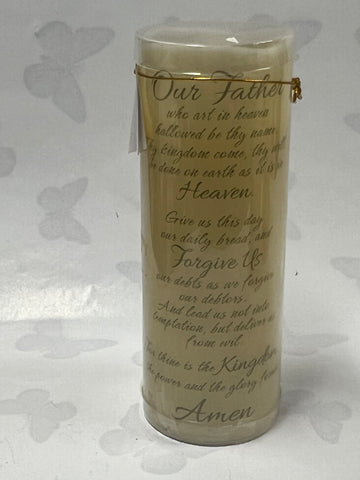 Our Father
who art in heaven
hallowed be thy name.
kingdom come, thy will
be done on earth as it is in
Heaven.
Give us this day
our daily bread, and
Forgive Us
our debts as we forgive
our debtors.
And lead us not into
temptation, but deliver us
from evil.
For thine is the Kingdom
the power and the glory
Amen